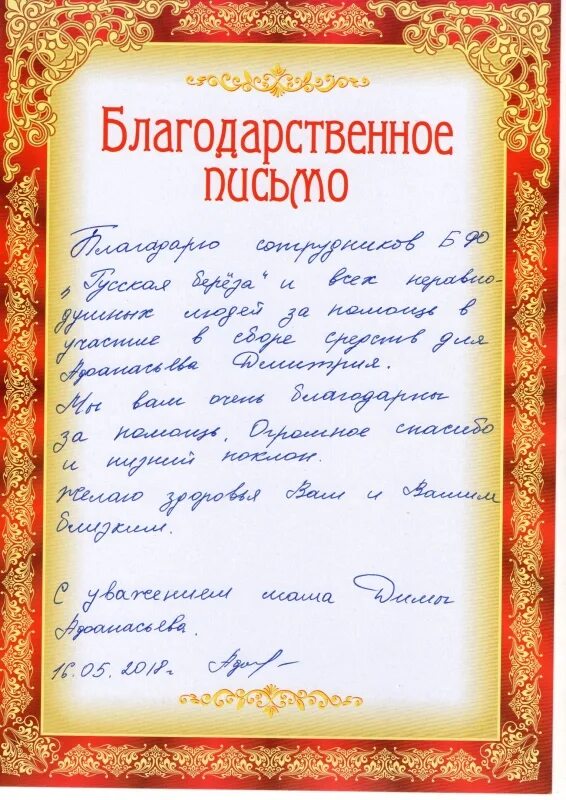 Благодарственное
письмо
Благадарю сотрудников БФ
„Русская берёза" и всех неравно-
душных людей за помощь в
участие в сборе средств для
Афанасьева Дмитрия.
Мы вам очень благодарны
за помощь. Огромное спасибо
и низкий поклон.
Желаю здоровья Вам и Вашим
близким.
С уважением мама Димы
Афанасьева.
16.05.2018г